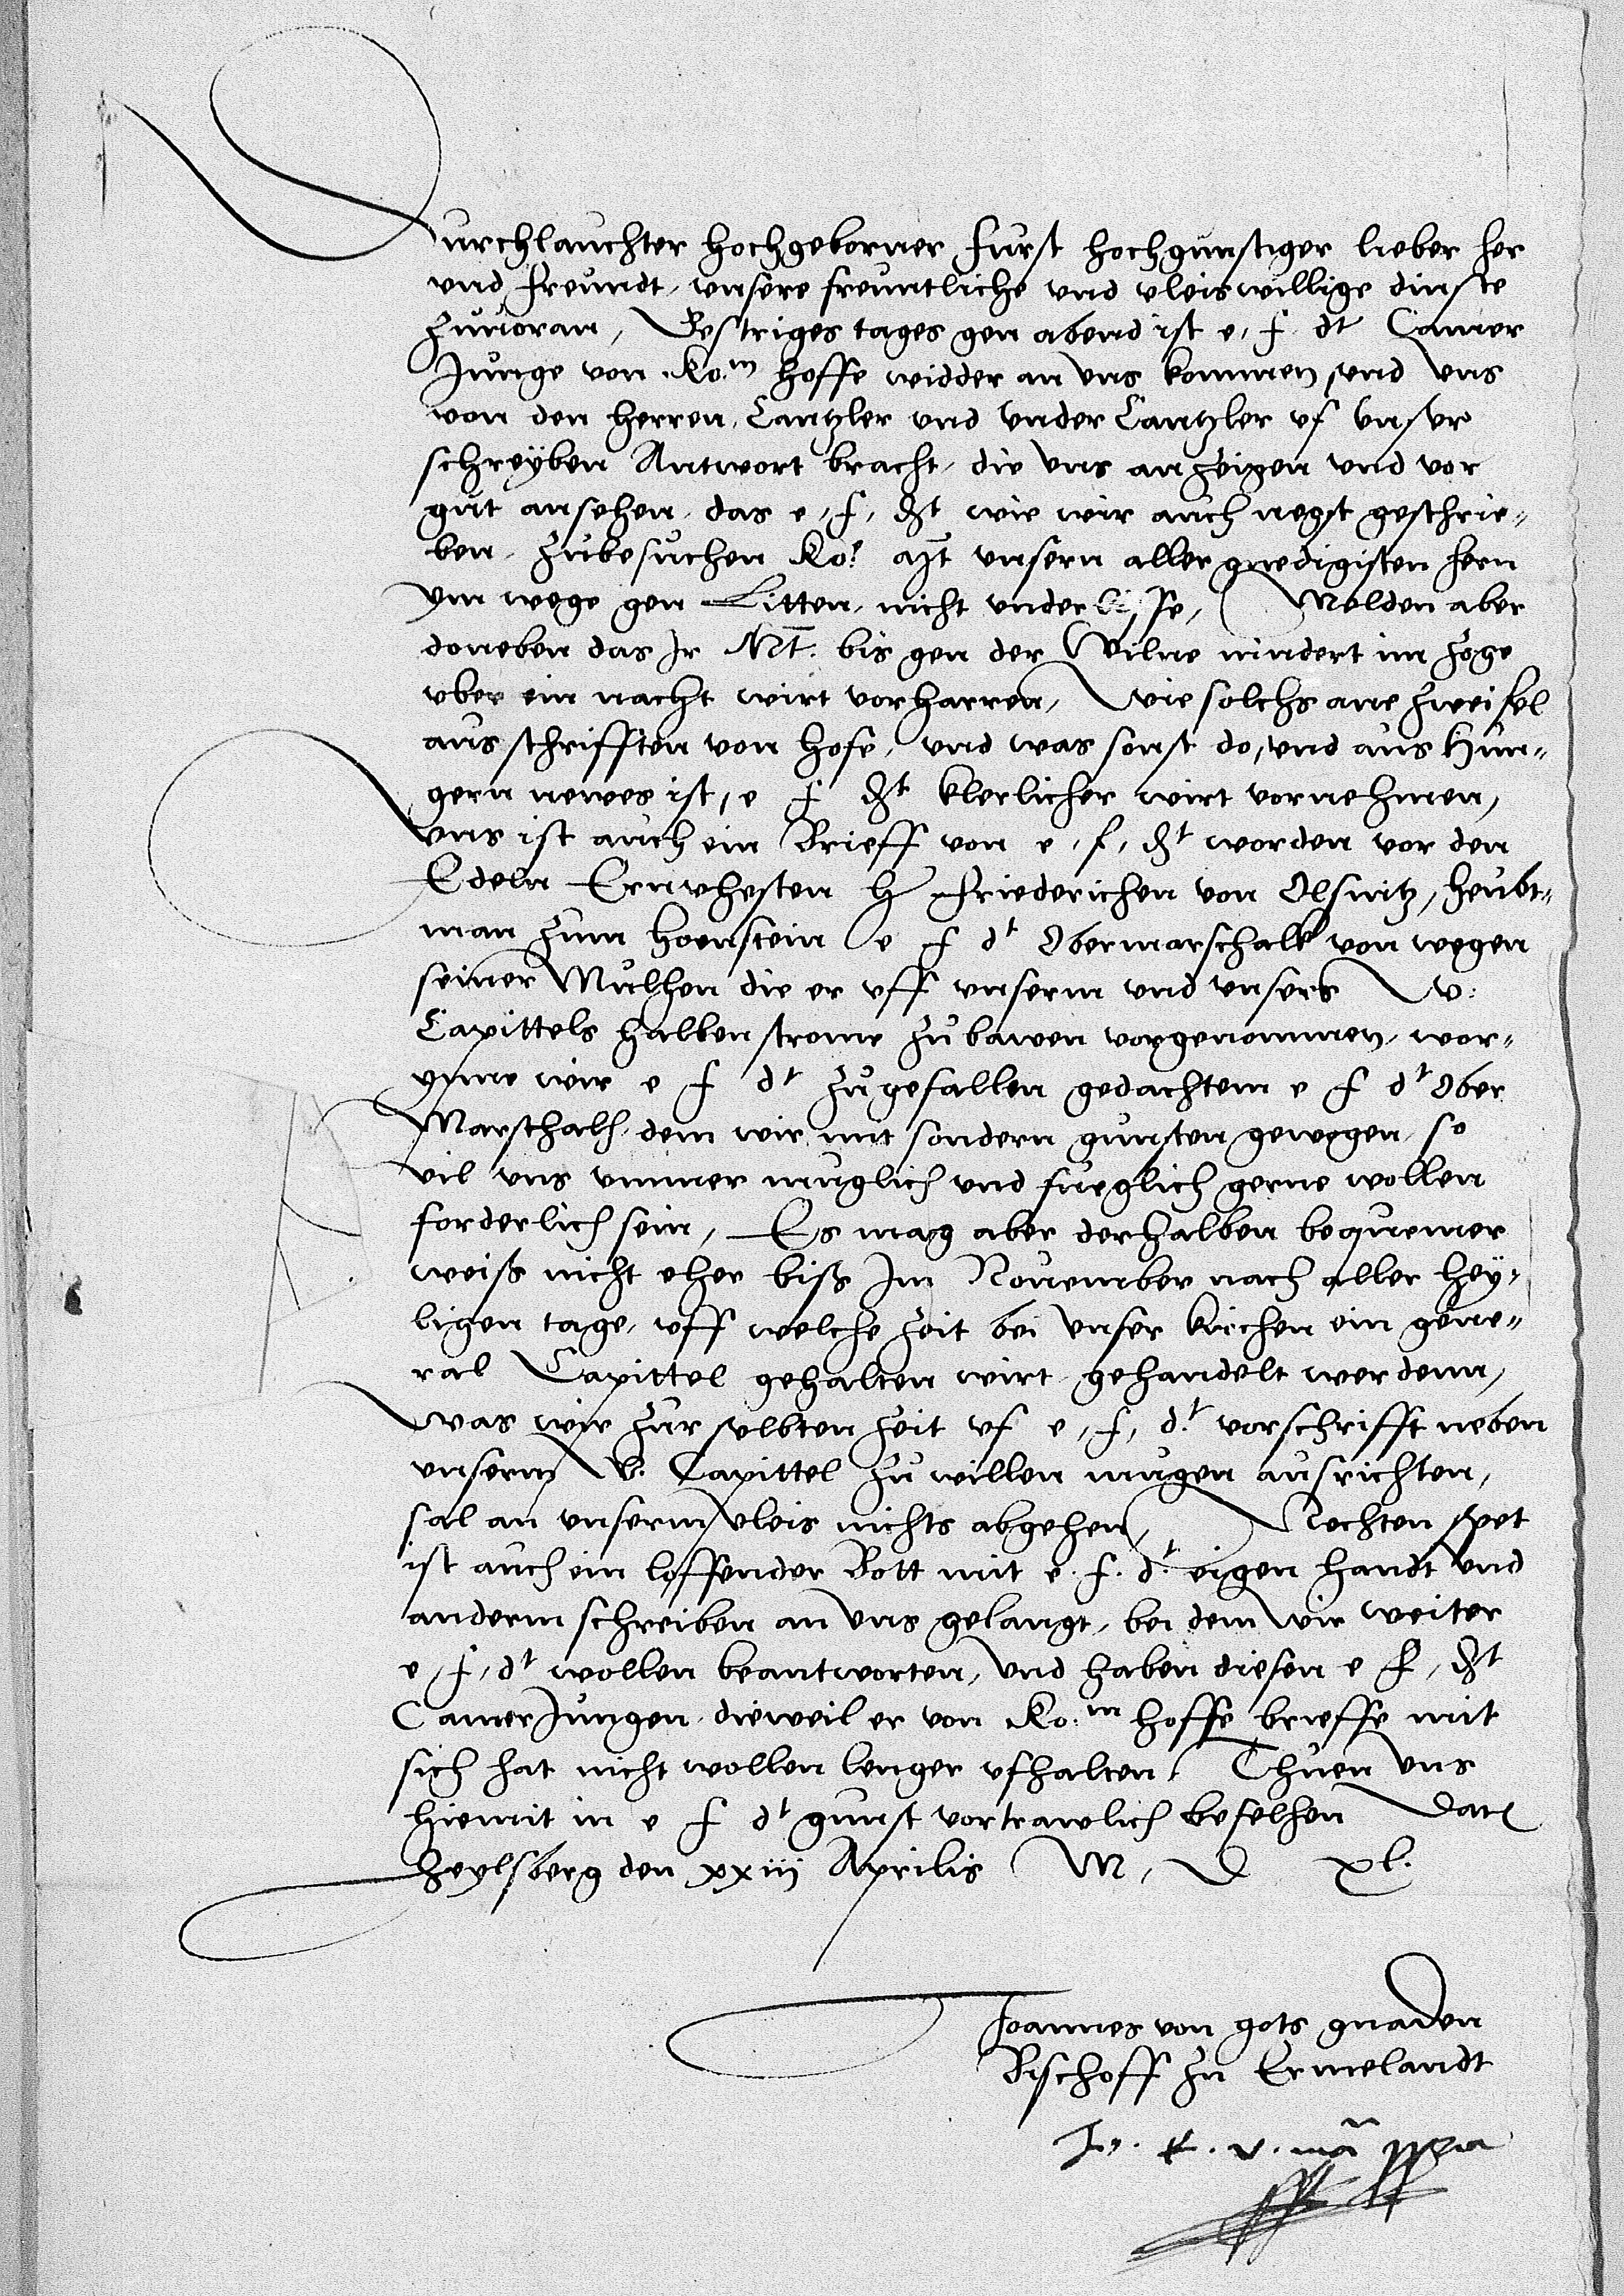 Durchlauchter hochgeborner furst hochgunstiger lieber her
vnd freundt, vnsere freuntliche vnd vleiswillige dinste
zuuoran, Gestriges tages gen abend ist e, f dt Camer
Junge von Ko.n hoffe widder an vns kommen, vnd vns
von den herren, Cantzler vnd vnder Cantzler vf vnser
schreyben Antwort bracht, die vns anzeigen vnd vor
gut ansehen, das e, f, dt wie wir auch negst geschrie„
ben, zubesuchen Ko.e Mt vnsern aller gnedigisten hern
ym wege gen Litten, nicht vnderlisse, Melden aber
doneben das Ir Mt. bis gen der Wilne nindert im zoge
vber ein nacht wirt vorharren, Wie solchs ane zweifel
aus schrifften von hofe, vnd was sonst do, vnd aus Hun„
gern newes ist, e f dt klerlicher wirt vornehmen,
Vns ist auch ein Brieff von e, f, dt worden vor den
Edeln Ernvhesten H Friederichen von Olsnitz, heubt„
man zum hoenstein e f dt Obermarschalk von wegen
seiner Mulhen die er vff vnserm vnd vnsers W:
Capittels halben strome zu bawen vorgenommen, wor„
ynne wir e f dt zugefallen gedachtem e f dt Ober
Marschalh, dem wir mit sondern gunsten gewogen, so
vil vns ymmer muglich vnd fueglich gerne wollen
forderlich sein, Es mag aber derhalben bequemer
weiß nicht eher biß Im Nouember nach aller hey„
ligen tage, vff welche zeit bei vnser kirchen ein gene„
ral Capittel gehalten wirt gehandelt werdenn,
Was wir zur selbten zeit vf e, f, dt. vorschrifft neben
vnserm W. Capittel zu willen mugen ausrichten,
sal an vnserm vleis nichts abgehen, Nechten spet
ist auch ein loffender Bott mit e. f. dt. eigen handt vnd
anderm schreiben an vns gelangt, bei dem wir weiter
e, f, dt wollen beantworten, vnd haben diesen e f, dt
Camer Jungen, dieweil er von Ko.n hoffe brieffe mit
sich hat nicht wollen lenger vfhalten, Thuen vns
hiemit in e f dt gunst vortrawlich befelhen Dat
Heylsberg den xxiij Aprilis M, D xl.
Joannes von gots gnaden
Bischoff zu Ermelandt